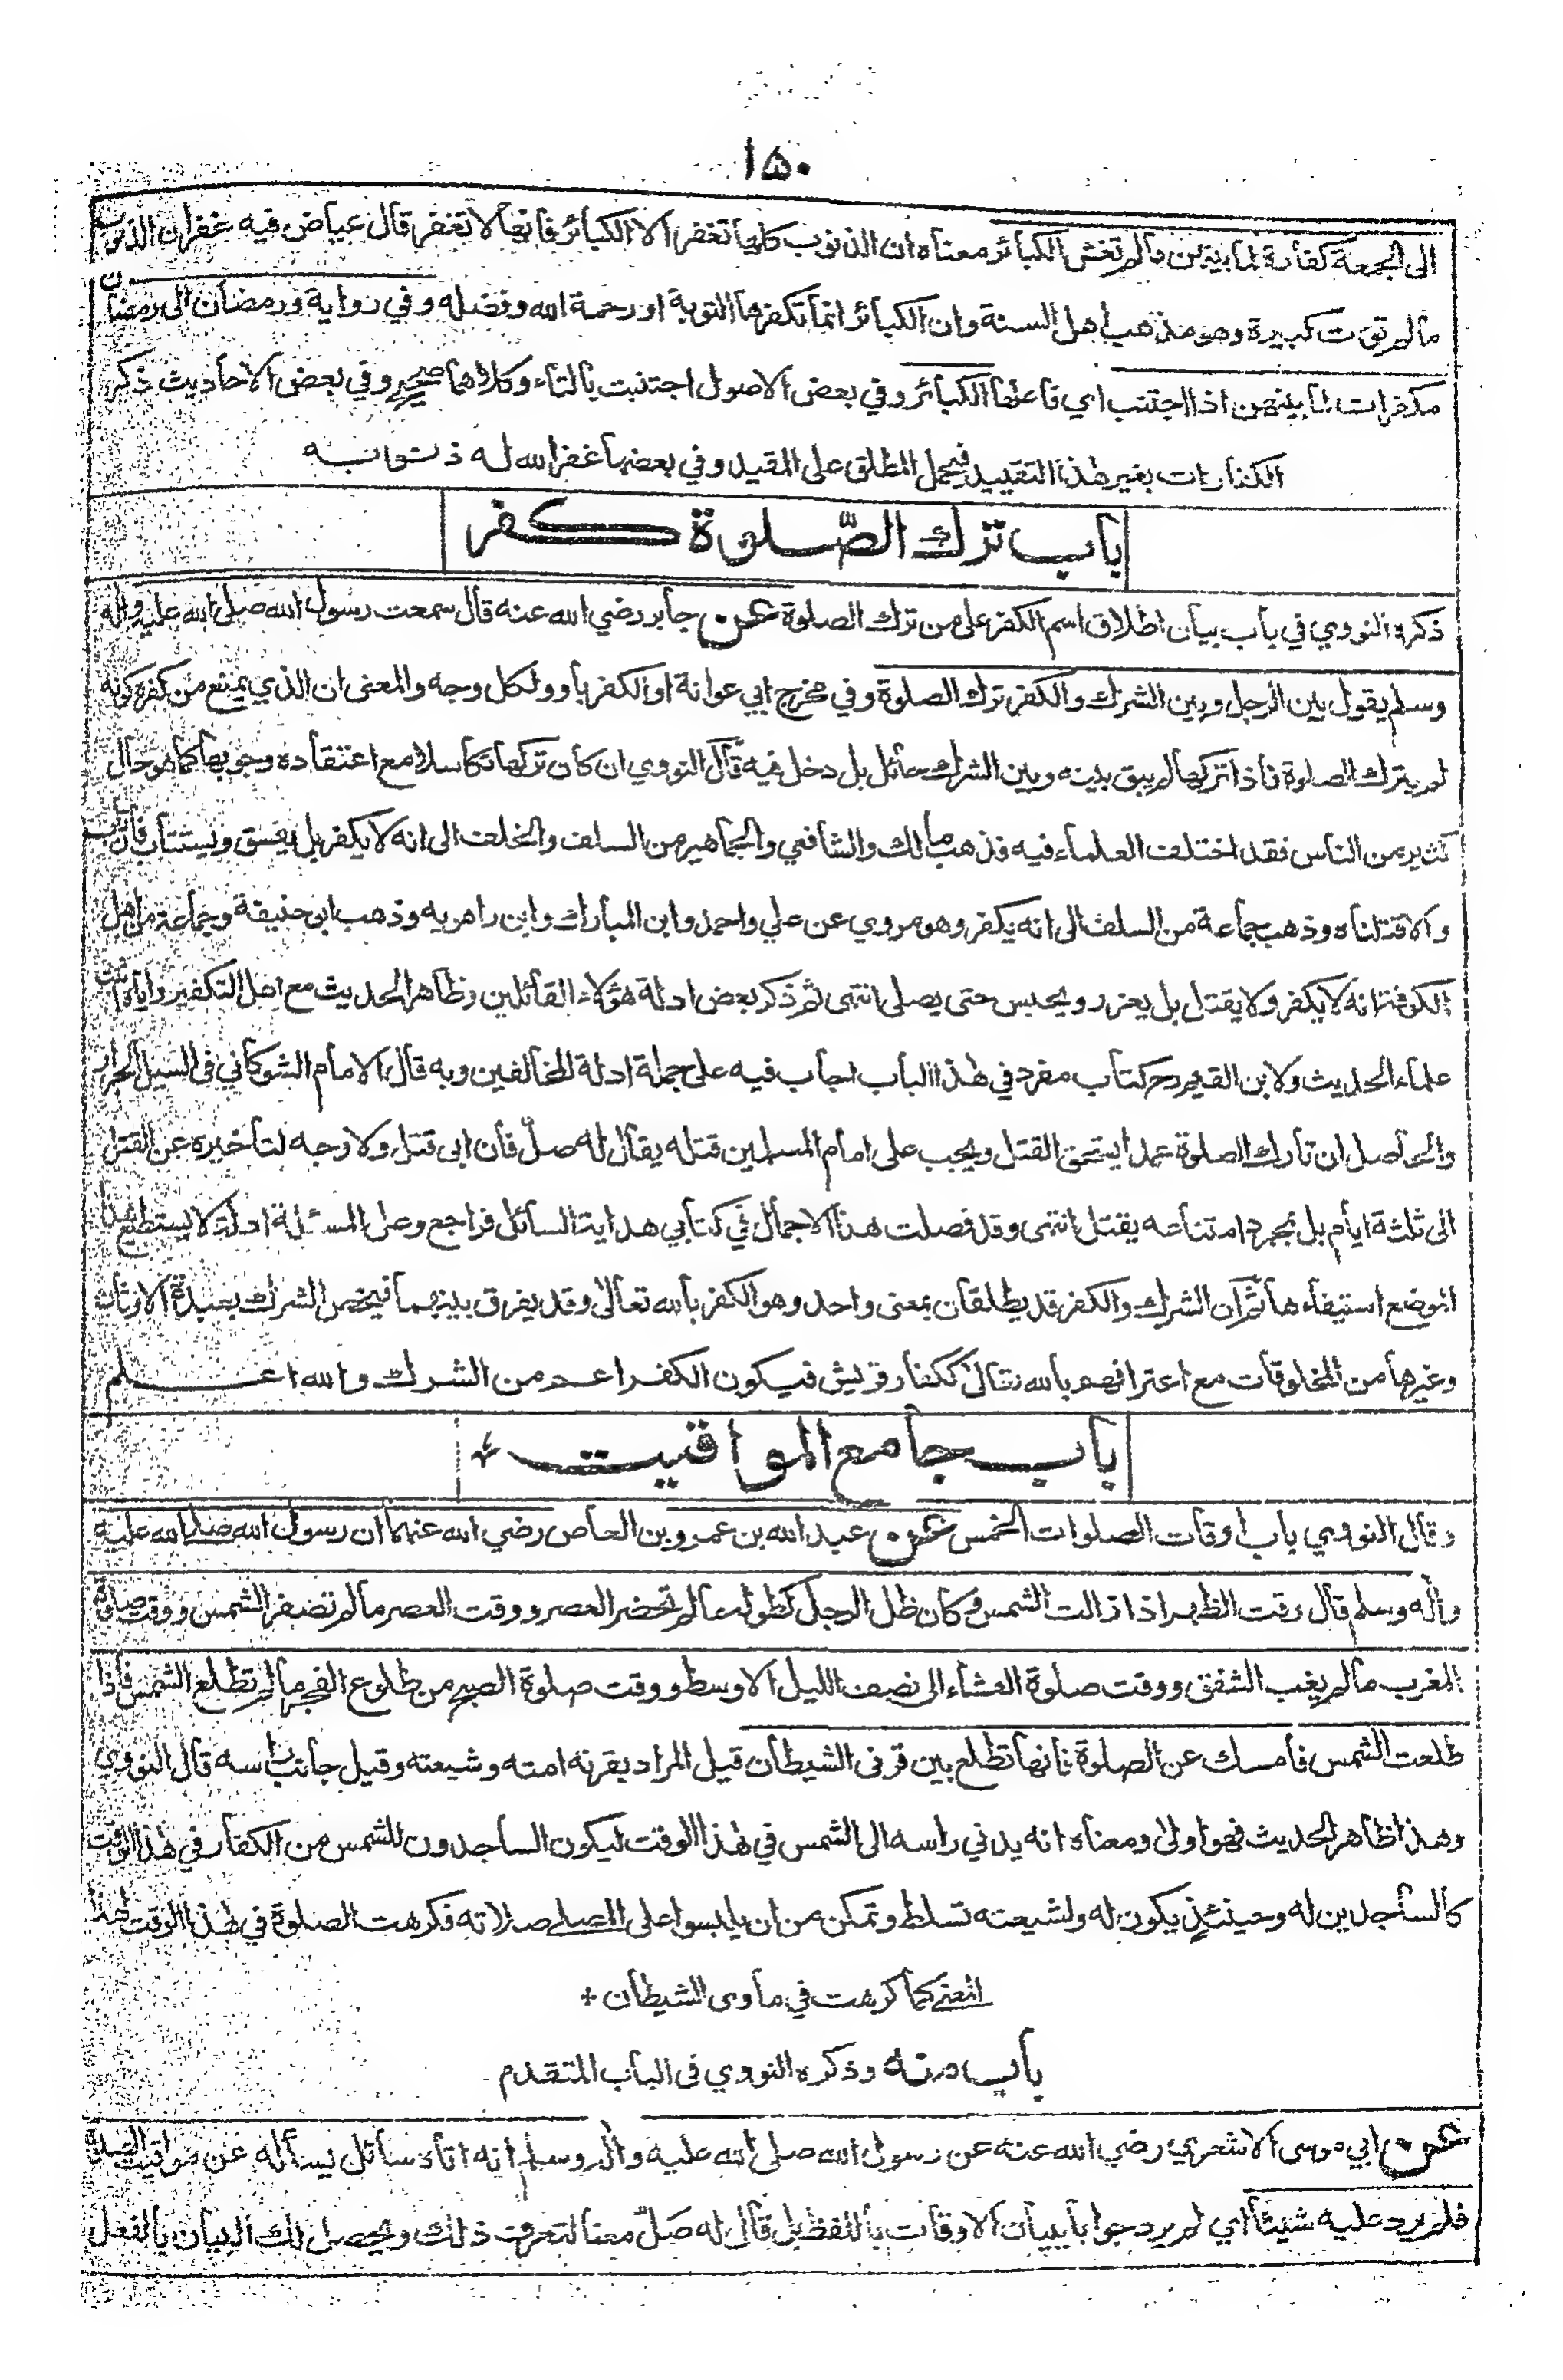 ١٥٠
الى الجمعة كفارة لما بينهن مالم تغش الكبائر معناه ان الذنوب كلها تغفر الا الكبائر فانها لا تغفر قال عياض فيه غفران الذنوب
مالم توت كبيرة وهو مذهب اهل السنة وان الكبائر انما تكفرها التوبة او رحمة الله وفضله وفي رواية ورمضان الى رمضان
مكفرات لما بينهن اذا اجتنب اي فاعلها الكبائر وفي بعض الاصول اجتنبت بالتاء وكلاهما صحيح وفي بعض الاحاديث ذكر
الكفارات بغير هذا التقييد فيحمل المطلق على المقيد وفي بعضها غفر الله له ذنوبه
باب ترك الصّلوة كفر
ذكره النووي في باب بيان اطلاق اسم الكفر على من ترك الصلوة عن جابر رضي الله عنه قال سمعت رسول الله صلى الله عليه واله
وسلم يقول بين الرجل وبين الشرك والكفر ترك الصلوة وفي مخرج ابي عوانة او الكفر باو ولكل وجه والمعنى ان الذي يمنع من كفره كونه
لم يترك الصلوة فاذا تركها لم يبق بينه وبين الشرك حائل بل دخل فيه قال النووي ان كان تركها تكاسلا مع اعتقاده وجوبها كما هو حال
كثير من الناس فقد اختلف العلماء فيه فذهب مالك والشافعي والجماهير من السلف والخلف الى انه لا يكفر بل يفسق ويستتاب فان تاب
والا قتلناه وذهب جماعة من السلف الى انه يكفر وهو مروي عن علي واحمد وابن المبارك وابن راهويه وذهب ابو حنيفة وجماعة من اهل
الكوفة انه لا يكفر ولا يقتل بل يعزر ويحبس حتى يصلي انتهى ثم ذكر بعض ادلة هؤلاء القائلين وظاهر الحديث مع اهل التكفير واياه
علماء الحديث ولابن القيم رح كتاب مفرد في هذا الباب اجاب فيه على جملة ادلة المخالفين وبه قال الامام الشوكاني في السيل الجرار
والحاصل ان تارك الصلوة عمدا يستحق القتل ويجب على امام المسلمين قتله يقال له صلّ فان ابى قتل ولا وجه لتاخيره عن القتل
الى ثلثة ايام بل بمجرد امتناعه يقتل انتهى وقد فصلت هذا الاجمال في كتابي هداية السائل فراجع وعلى المسئلة ادلة لا يستطيع هذا
الموضع استيفاءها ثم ان الشرك والكفر قد يطلقان بمعنى واحد وهو الكفر بالله تعالى وقد يفرق بينهما فيخص الشرك بعبدة الاوثان
وغيرها من المخلوقات مع اعترافهم بالله تعالى ككفار قريش فيكون الكفر اعم من الشرك والله اعلم
باب جامع المواقيت
وقال النووي باب اوقات الصلوات الخمس عن عبد الله بن عمرو بن العاص رضي الله عنهما ان رسول الله صلى الله عليه
واله وسلم قال وقت الظهر اذا زالت الشمس وكان ظل الرجل كطوله مالم تحضر العصر ووقت العصر مالم تصفر الشمس ووقت صلوة
المغرب مالم يغب الشفق ووقت صلوة العشاء الى نصف الليل الاوسط ووقت صلوة الصبح من طلوع الفجر مالم تطلع الشمس فاذا
طلعت الشمس فامسك عن الصلوة فانها تطلع بين قرني الشيطان قيل المراد بقرنه امته وشيعته وقيل جانب راسه قال النووي
وهذا ظاهر الحديث فهو اولى ومعناه انه يدني راسه الى الشمس في هذا الوقت ليكون الساجدون للشمس من الكفار في هذا الوقت
كالساجدين له وحينئذ يكون له ولشيعته تسلط وتمكن من ان يلبسوا على المصلي صلاته فكرهت الصلوة في هذا الوقت لهذا
المعنى كما كرهت في ماوى الشيطان +
باب منه وذكره النووي في الباب المتقدم
عن ابي موسى الاشعري رضي الله عنه عن رسول الله صلى الله عليه واله وسلم انه اتاه سائل يساله عن مواقيت الصلوة
فلم يرد عليه شيئا اي لم يرد جوابا ببيان الاوقات باللفظ بل قال له صلّ معنا لتعرف ذلك ويحصل لك البيان بالفعل